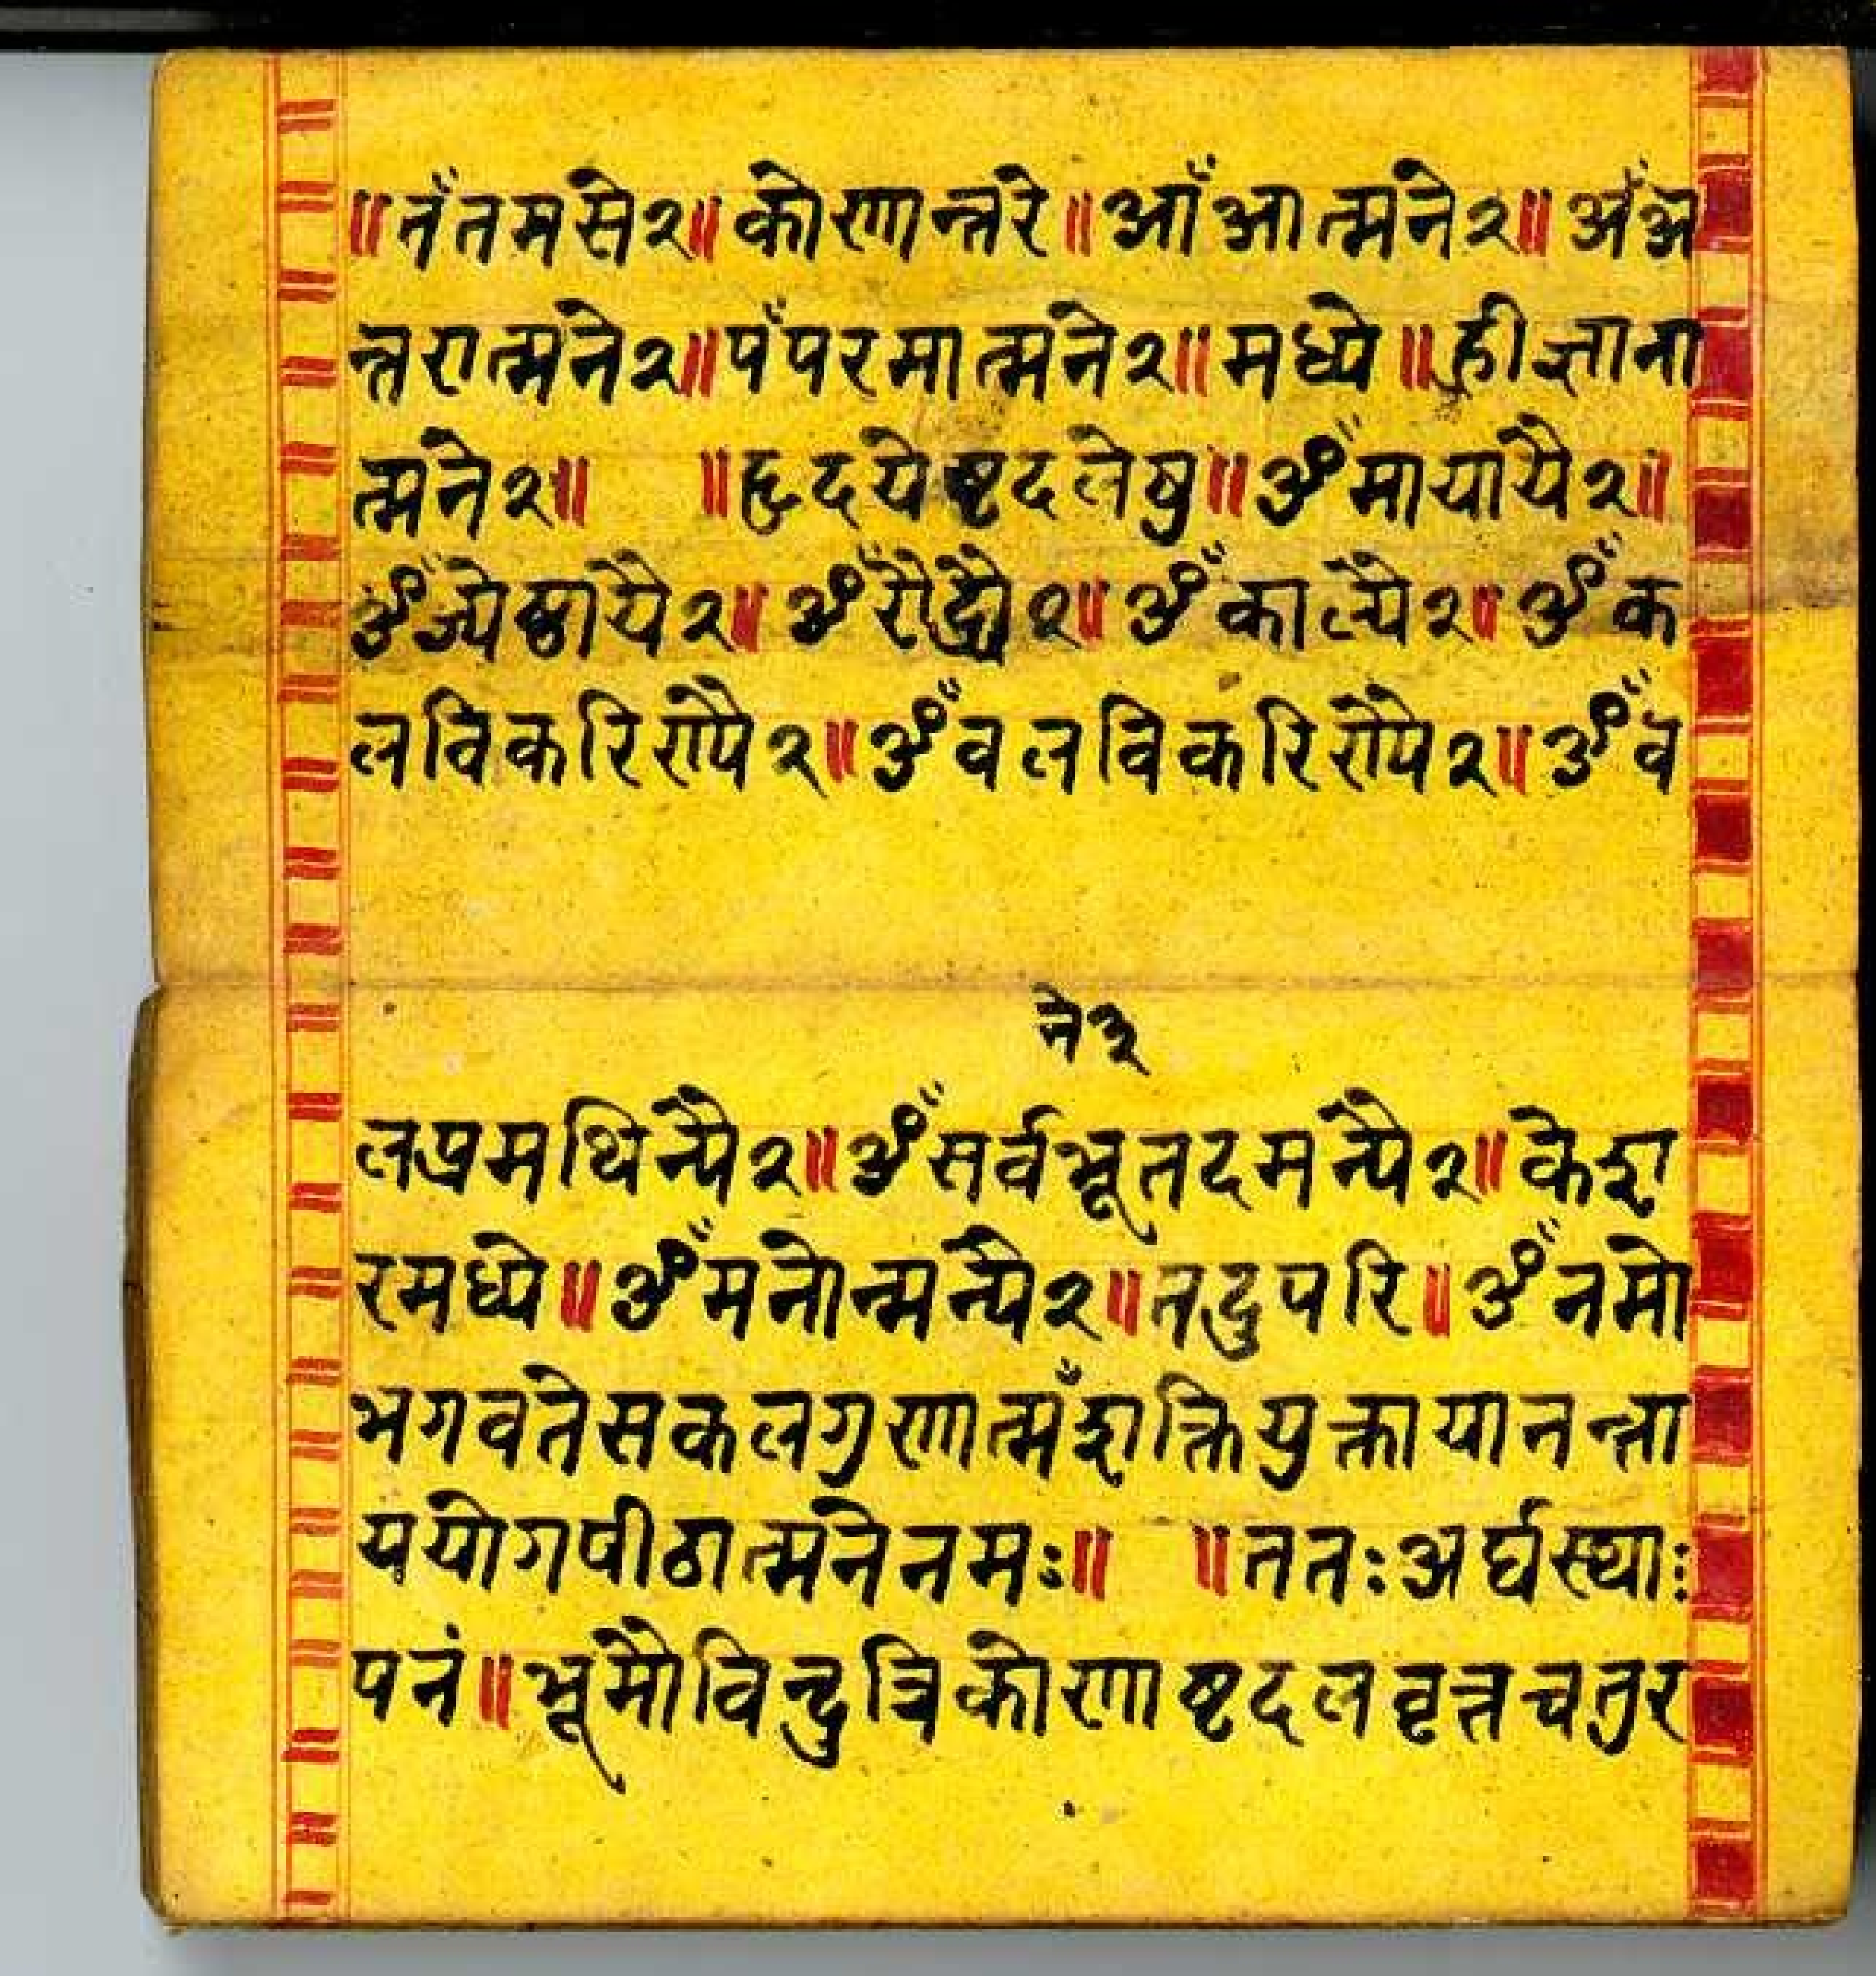 ॥तँतमसे२॥कोणान्तरे॥आँआत्मने२॥अँअ
न्तरात्मने२॥पँपरमात्मने२॥मध्ये॥ह्रीज्ञाना
त्मने२॥ ॥हृदयेष्टदलेषु॥ॐमायायै२॥
ॐज्येष्ठायै२॥ॐरौद्र्यै२॥ॐकाल्यै२॥ॐक
लविकरिण्यै२॥ॐवलविकरिण्यै२॥ॐव
ने३
लप्रमथिन्यै२॥ॐसर्वभूतदमन्यै२॥केश
रमध्ये॥ॐमनोन्मन्यै२॥तदुपरि॥ॐनमो
भगवतेसकलगुणात्मँशक्तियुक्तायानन्ता
ययोगपीठात्मनेनमः॥ ॥ततःअर्घस्थाः
पनं॥भूमौविन्दुत्रिकोणाष्टदलवृत्तचतुर